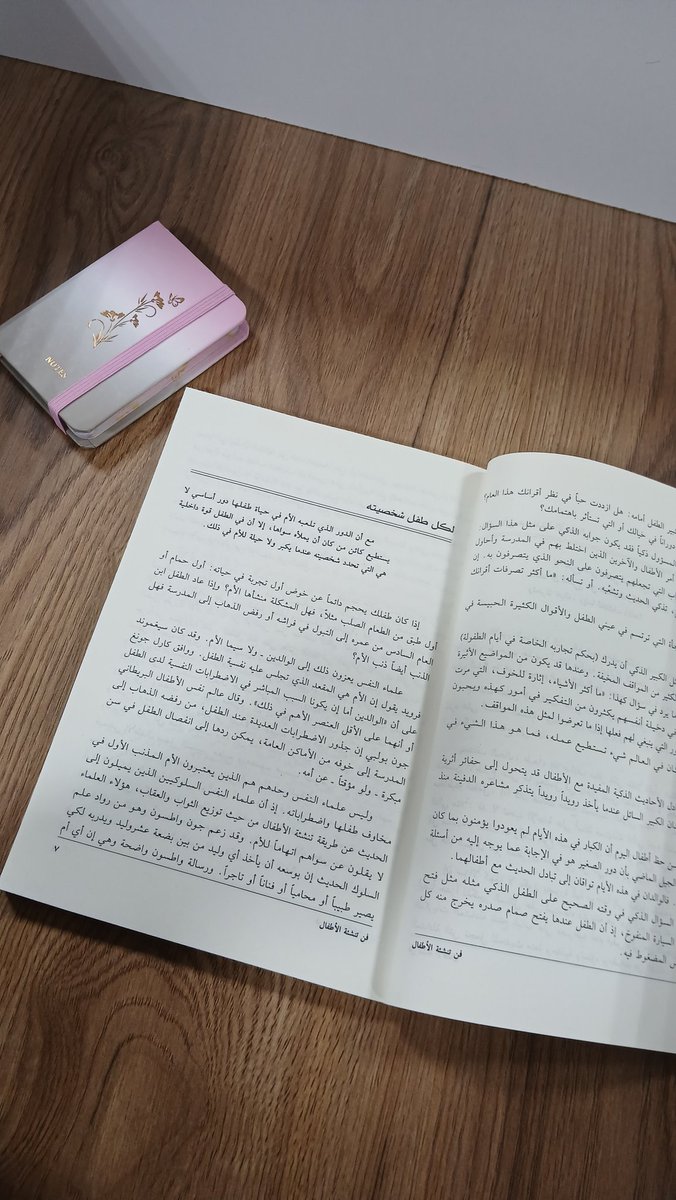 NOTES
لكل طفل شخصيته
مع أن الدور الذي تلعبه الأم في حياة طفلها دور أساسي لا
يستطيع كائن من كان أن يملأه سواها، إلا أن في الطفل قوة داخلية
هي التي تحدد شخصيته عندما يكبر ولا حيلة للأم في ذلك.
إذا كان طفلك يحجم دائماً عن خوض أول تجربة في حياته: أول حمام أو
أول طبق من الطعام الصلب مثلاً، فهل المشكلة منشأها الأم؟ وإذا عاد الطفل ابن
العام السادس من عمره إلى التبول في فراشه أو رفض الذهاب إلى المدرسة فهل
الذنب أيضاً ذنب الأم؟
علماء النفس يعزون ذلك إلى الوالدين ـ ولا سيما الأم. وقد كان سيغموند
فرويد يقول إن الأم هي المقعد الذي تجلس عليه نفسية الطفل. ووافق كارل جونغ
على أن «الوالدين أما إن يكونا السبب المباشر في الاضطرابات النفسية لدى الطفل
أو أنهما على الأقل العنصر الأهم في ذلك». وقال عالم نفس الأطفال البريطاني
جون بولبي إن جذور الاضطرابات العديدة عند الطفل، من رفضه الذهاب إلى
المدرسة إلى خوفه من الأماكن العامة، يمكن ردها إلى انفصال الطفل في سن
مبكرة ـ ولو مؤقتاً ـ عن أمه.
وليس علماء النفس وحدهم هم الذين يعتبرون الأم المذنب الأول في
مخاوف طفلها واضطراباته. إذ أن علماء النفس السلوكيين الذين يميلون إلى
الحديث عن طريقة تنشئة الأطفال من حيث توزيع الثواب والعقاب، هؤلاء العلماء
لا يقلون عن سواهم اتهاماً للأم. وقد زعم جون واطسون وهو من رواد علم
السلوك الحديث إن بوسعه أن يأخذ أي وليد من بين بضعة عشر وليد ويدربه لكي
يصير طبيباً أو محامياً أو فناناً أو تاجراً. ورسالة واطسون واضحة وهي إن أي أم
٧
فن تنشئة الأطفال
الطفل أمامه: هل ازددت حباً في نظر أقرانك هذا العام؟
دوراناً في خيالك أو التي تستأثر باهتمامك؟
المسؤول ذكياً فقد يكون جوابه الذكي على مثل هذا السؤال:
أمر الأطفال والآخرين الذين اختلط بهم في المدرسة وأحاول
التي تجعلهم يتصرفون على النحو الذي يتصرفون به. إن
تذكي الحديث وتنشئه. أو نسأله: «ما أكثر تصرفات أقرانك
التي ترتسم في عيني الطفل والأقوال الكثيرة الحبيسة في
الكبير الذكي أن يدرك (بحكم تجاربه الخاصة في أيام الطفولة)
من المواقف المخيفة. وعندها قد يكون من المواضيع الأثيرة
ما يرد في سؤال كهذا: «ما أكثر الأشياء، إثارة للخوف، التي مرت
في دخيلة أنفسهم يكثرون من التفكير في أمور كهذه ويحبون
التي ينبغي لهم فعلها إذا ما تعرضوا لمثل هذه المواقف.
في العالم شيء تستطيع عمله، فما هو هذا الشيء في
الأحاديث الذكية المفيدة مع الأطفال قد يتحول إلى حفائر أثرية
الكبير السائل عندما يأخذ رويداً رويداً يتذكر مشاعره الدفينة منذ
حظ أطفال اليوم أن الكبار في هذه الأيام لم يعودوا يؤمنون بما كان
الجيل الماضي بأن دور الصغير هو في الإجابة عما يوجه إليه من أسئلة
فالوالدان في هذه الأيام تواقان إلى تبادل الحديث مع أطفالهما.
السؤال الذكي في وقته الصحيح على الطفل الذكي مثله مثل فتح
السيارة المنفوخ، إذ أن الطفل عندها يفتح صمام صدره يخرج منه كل
المضغوط فيه.
فن تنشئة الأطفال